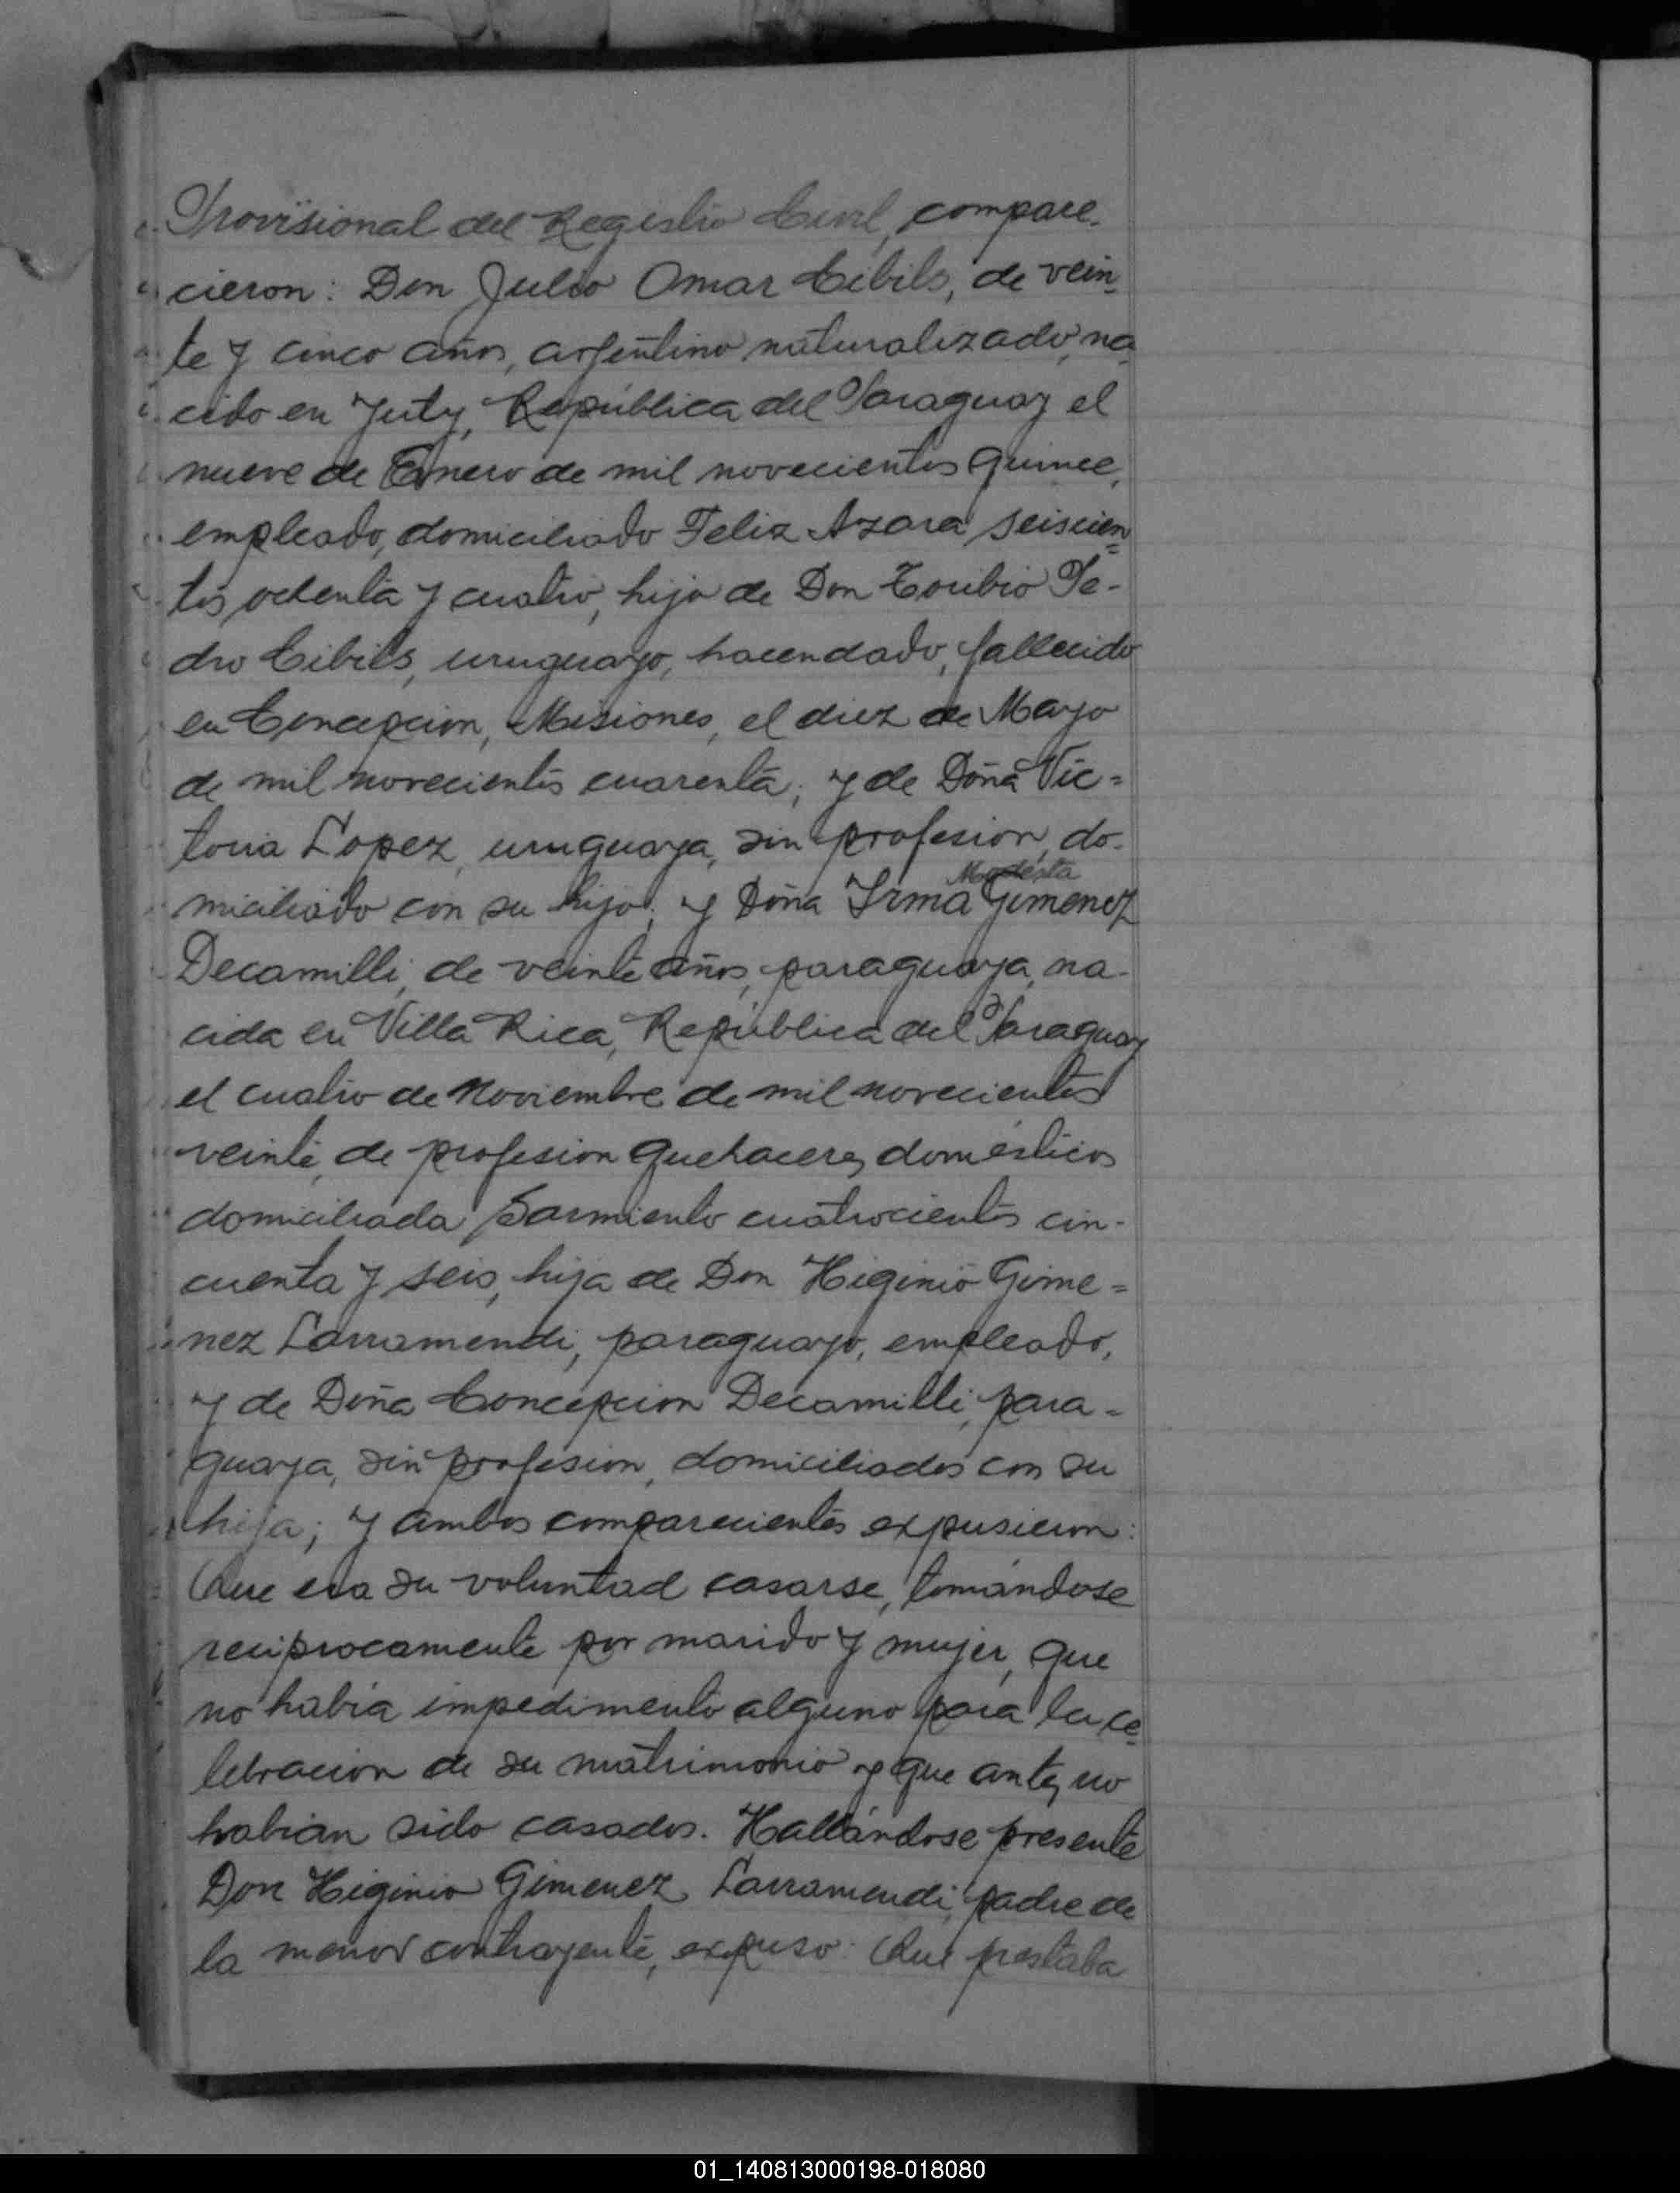 Provisional del Registro Civil, compare-
cieron: Don Julio Omar Cibils, de vein-
te y cinco años, argentino naturalizado, na-
cido en Yuty, República del Paraguay el
nueve de Enero de mil novecientos quince,
empleado, domiciliado Feliz Azara seiscien=
tos ochenta y cuatro, hijo de Don Toribio Pe-
dro Cibils, uruguayo, hacendado, fallecido
en Concepcion, Misiones, el diez de Mayo
de mil novecientos cuarenta; y de Doña Vic=
toria Lopez, uruguaya, sin profesion, do-
Modesta
miciliado con su hijo; y Doña Irma Gimenez
Decamilli, de veinte años, paraguaya, na-
cida en Villa Rica, República del Paraguay
el cuatro de Noviembre de mil novecientos
veinte, de profesion quehaceres domésticos
domiciliada Sarmiento cuatrocientos cin-
cuenta y seis, hija de Don Higinio Gime=
nez Larramendi, paraguayo, empleado,
y de Doña Concepcion Decamilli, para-
guaya, sin profesion, domiciliados con su
hija; y ambos comparecientes expusieron:
Que era su voluntad casarse, tomándose
reciprocamente por marido y mujer, que
no habia impedimento alguno para la ce-
lebracion de su matrimonio y que antes no
habian sido casados. Hallándose presente
Don Higinio Gimenez Larramendi, padre de
la menor contrayente, expuso: Que prestaba
01_140813000198-018080